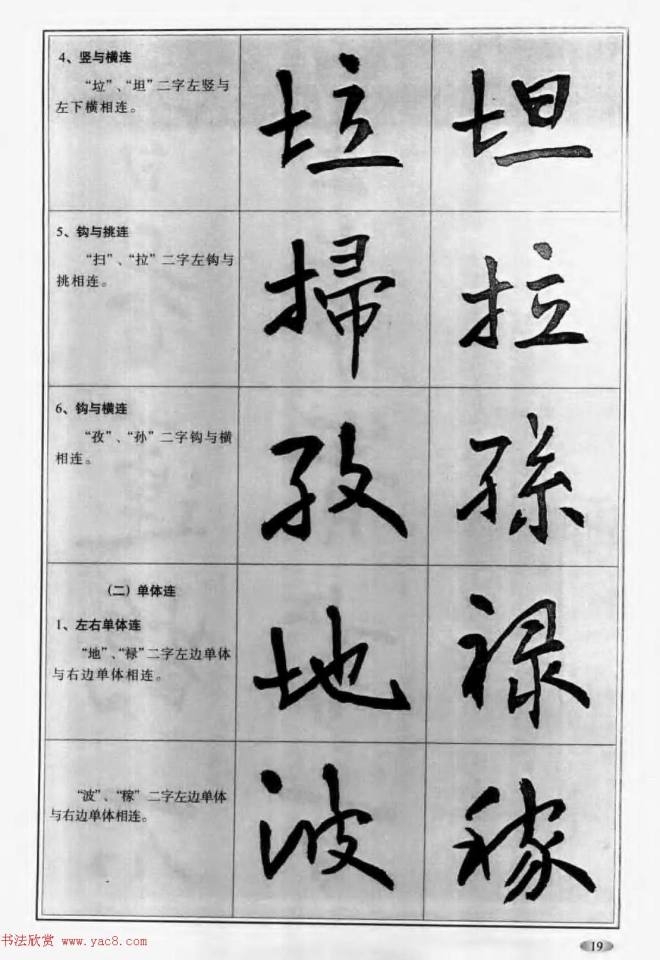 4、竖与横连
“垃”、“坦”二字左竖与
左下横相连。
垃 坦
5、钩与挑连
“扫”、“拉”二字左钩与
挑相连。
掃 拉
6、钩与横连
“孜”、“孙”二字钩与横
相连。
孜 孫
（二）单体连
1、左右单体连
“地”、“禄”二字左边单体
与右边单体相连。
地 禄
“波”、“稼”二字左边单体
与右边单体相连。
波 稼
书法欣赏 www.yac8.com
19